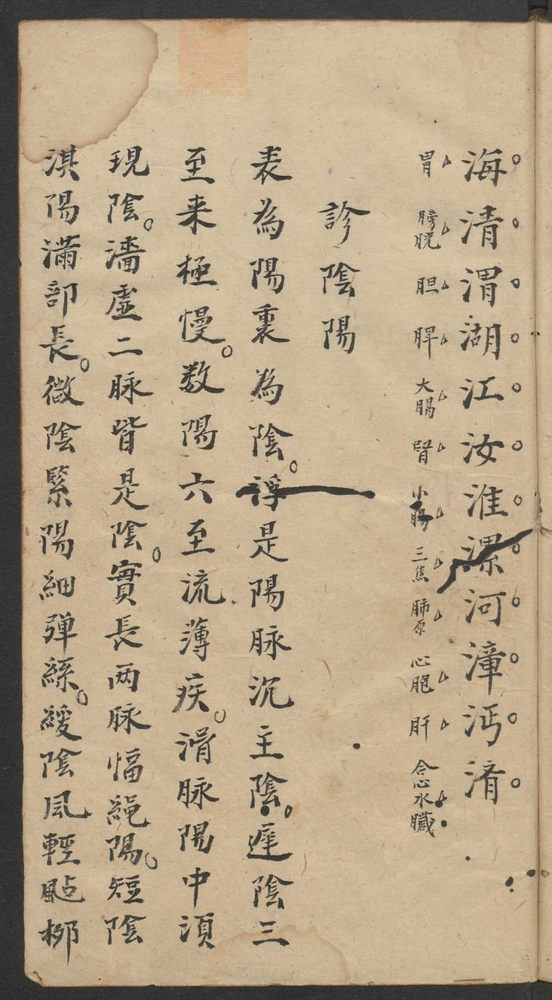 海清渭湖江汝淮漯河漳沔湇
胃 膀胱 胆 脾 大腸 腎 小腸 三焦 肺原 心胞 肝 念水臟
診陰陽
表為陽裏為陰浮是陽脉沉主陰遲陰三
至来極慢数陽六至流薄疾滑脉陽中湏
現陰濇虛二脉皆是陰實長两脉幅繩陽短陰
淇陽滿部長微陰緊陽細弹絲緩陰風輕颭栁